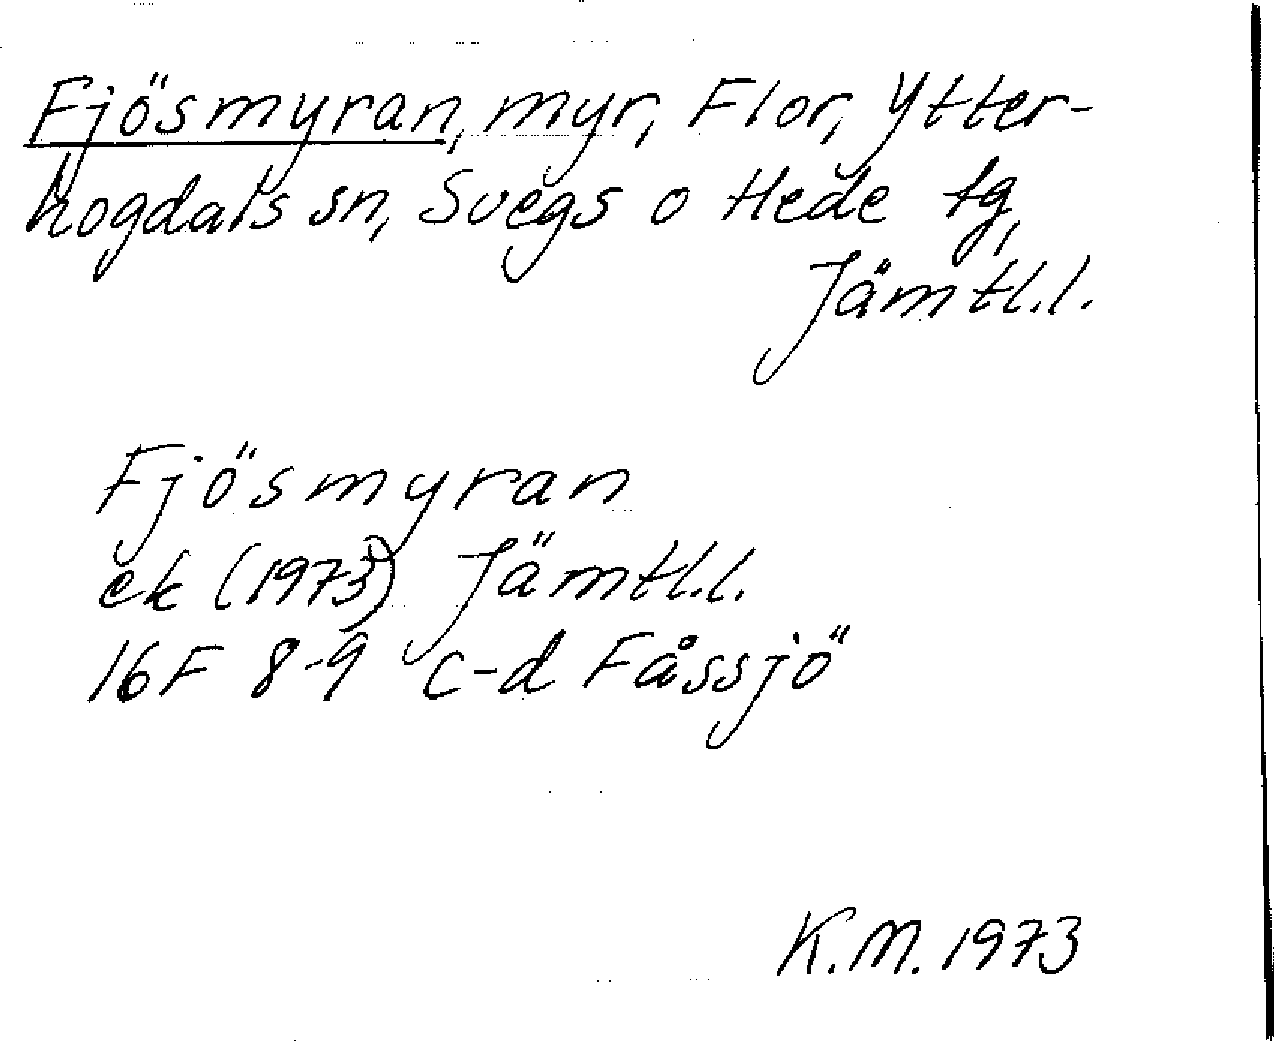 Fjösmyran, myr, Flor, Ytter-
hogdals sn, Svegs o Hede tg,
Jämtl.l.
Fjösmyran
ek (1973) Jämtl.l.
16F 8-9 c-d Fåssjö
K.M. 1973